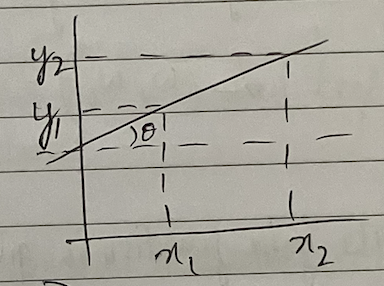 y₂
y₁
θ
x₁
x₂